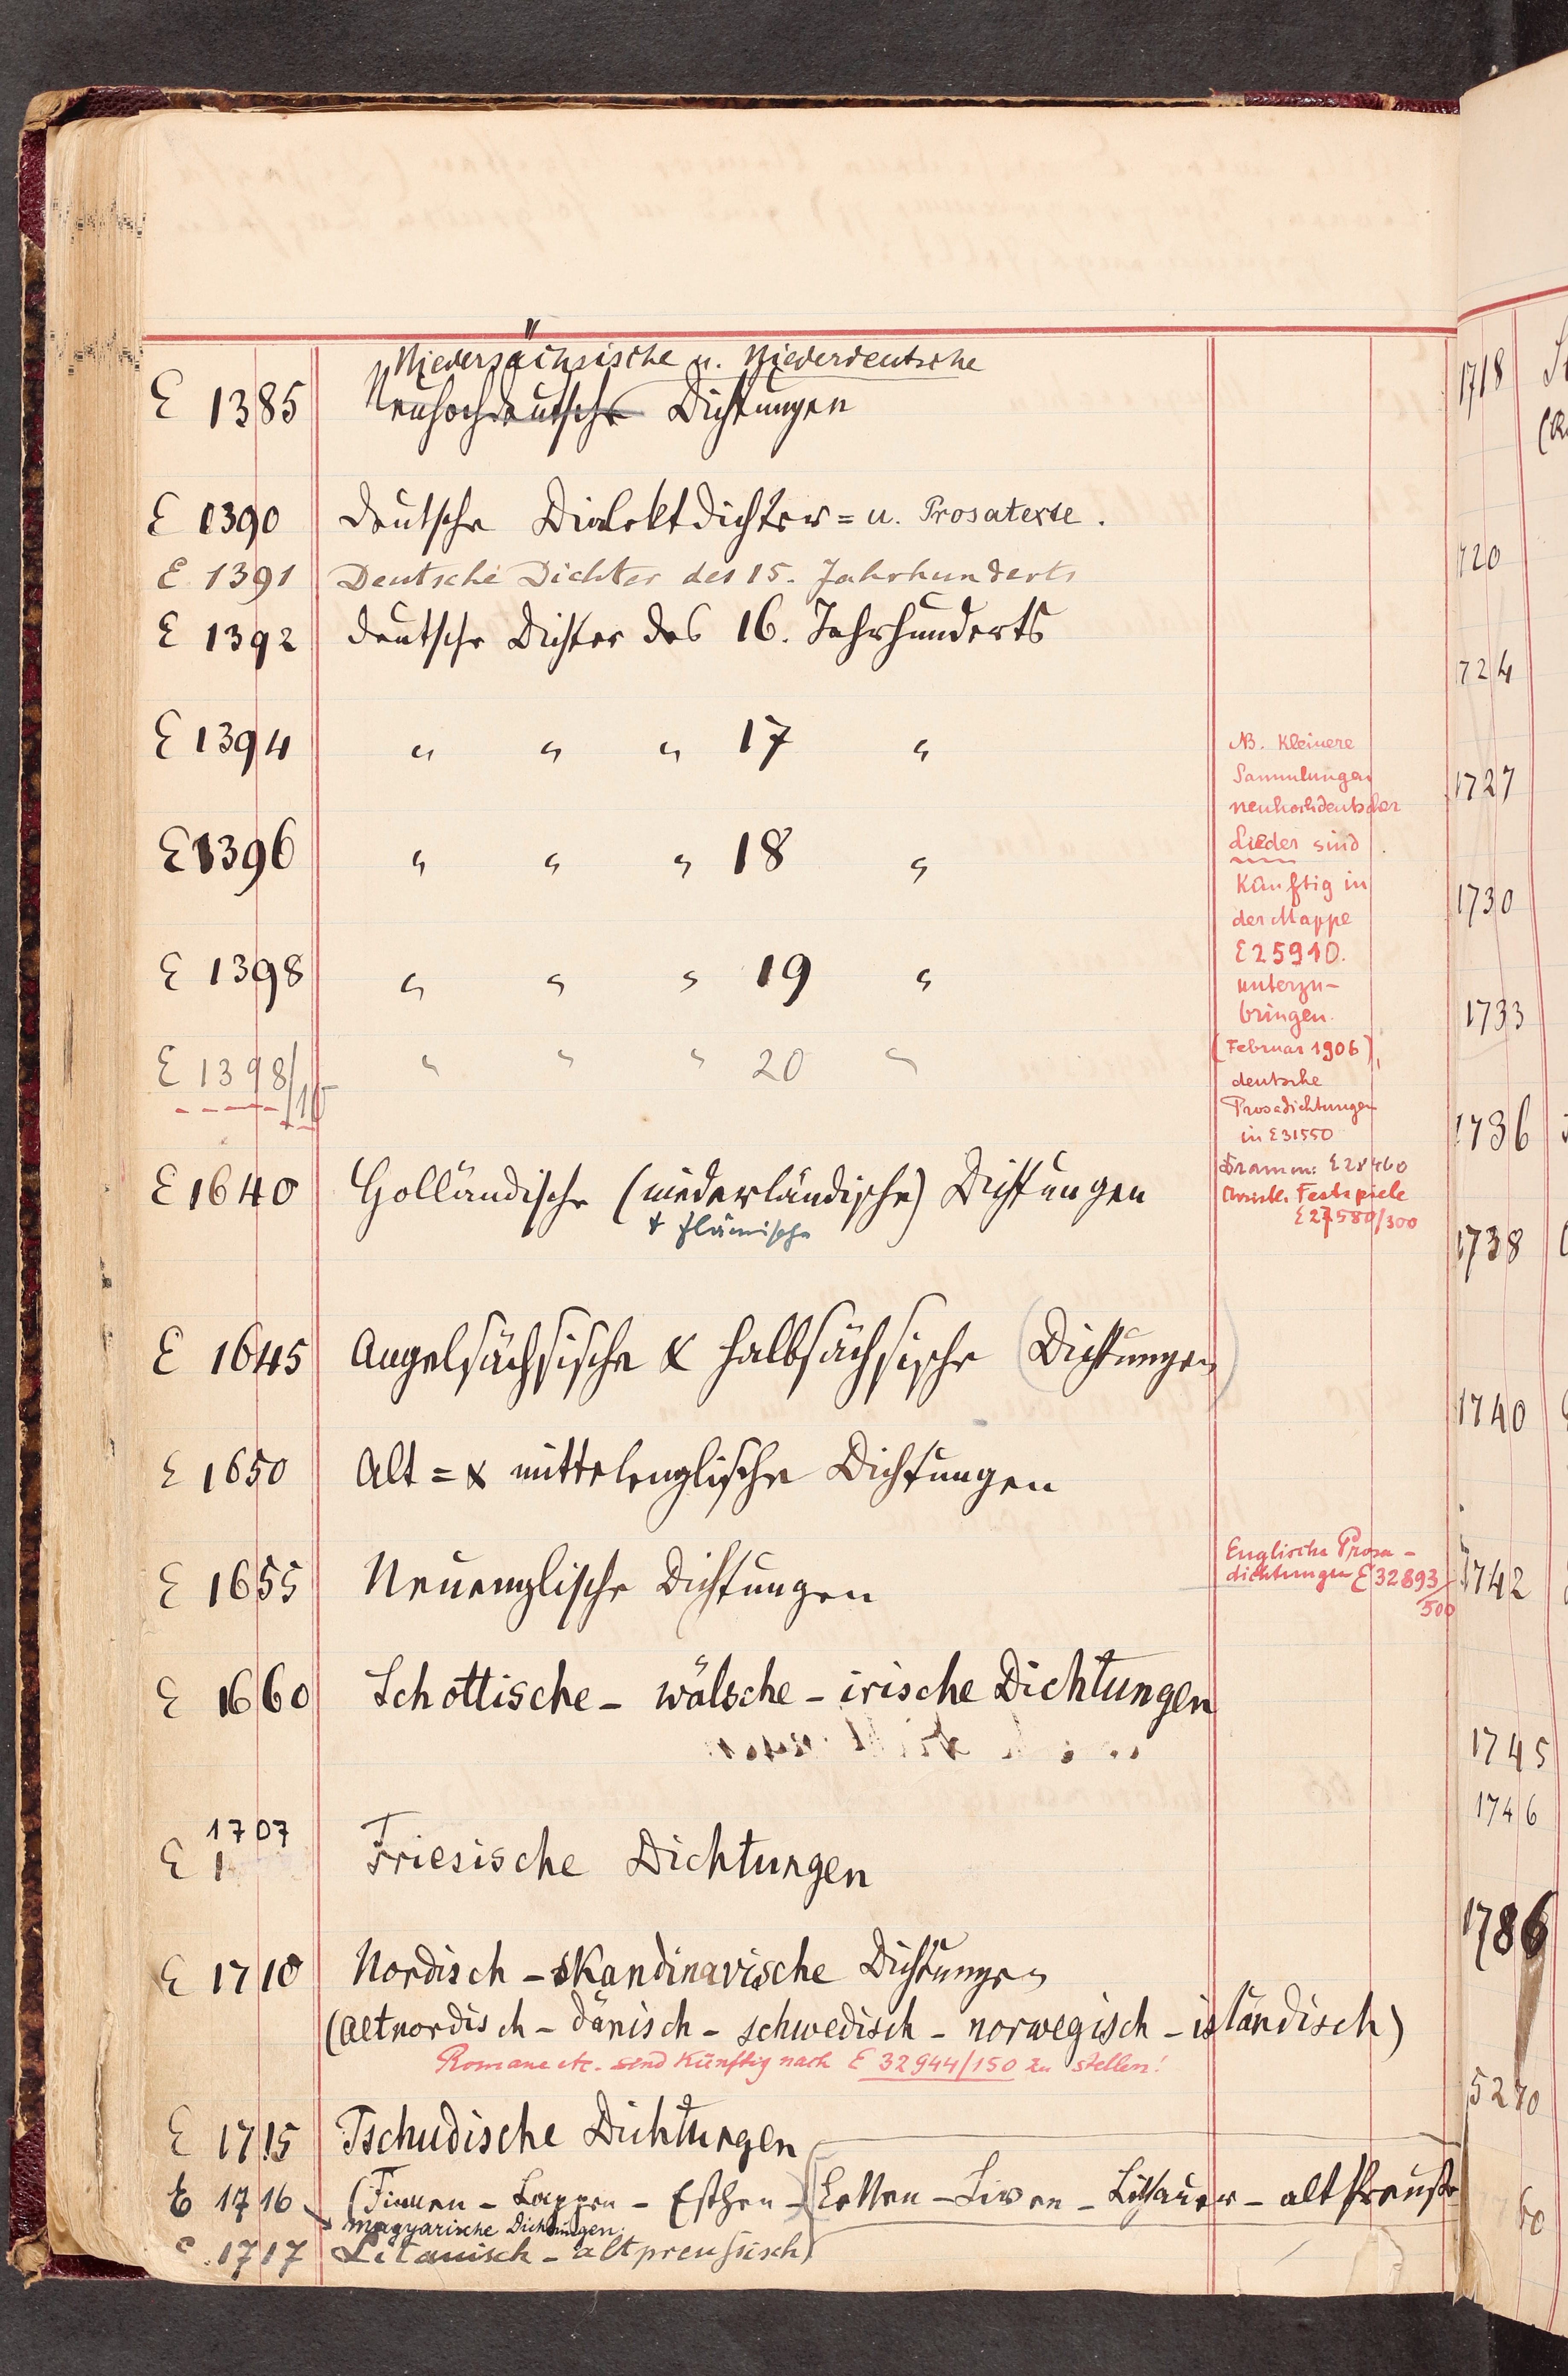 Niedersächsische u. Niederdeutsche
E 1385 Neuhochdeutsche Dichtungen
E 1390 Deutsche Dialektdichter= u. Prosatexte.
E 1391 Deutsche Dichter des 15. Jahrhunderts
E 1392 Deutsche Dichter des 16. Jahrhunderts
E 1394 " " " 17 "
E 1396 " " " 18 "
E 1398 " " " 19 "
E 1398/10 " " " 20 "
NB. Kleinere
Sammlungen
neuhochdeutscher
Lieder sind
künftig in
der Mappe
E 25910.
unterzu-
bringen.
(Februar 1906),
deutsche
Prosadichtungen
in E 31550
Dramen: E 28460
Christl. Festspiele
E 27580/300
E 1640 Holländische (niederländische) Dichtungen
+ flämische
E 1645 Angelsächsische & halbsächsische (Dichtungen)
E 1650 Alt= & mittelenglische Dichtungen
E 1655 Neuenglische Dichtungen
Englische Prosa-
dichtungen E 32893/
500
E 1660 Schottische - wälsche - irische Dichtungen
1707
E 1 Friesische Dichtungen
E 1710 Nordisch - skandinavische Dichtungen
(Altnordisch - dänisch - schwedisch - norwegisch - isländisch)
Romane etc. sind künftig nach E 32944/150 zu stellen!
E 1715 Tschudische Dichtungen
E 1716 (Finnen - Lappen - Esthen - (Letten - Liven - Litthauer - alt Preuße
magyarische Dichtungen.
E 1717 Litauisch - altpreussisch)
1718
1720
1724
1727
1730
1733
1736
1738
1740
1742
1745
1746
1786
5270
60